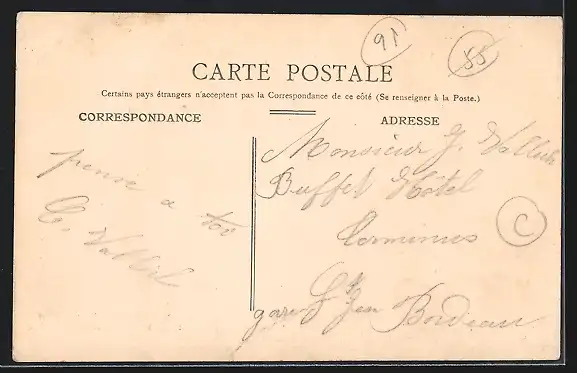 91
55
CARTE POSTALE
Certains pays étrangers n'acceptent pas la Correspondance de ce côté (Se renseigner à la Poste.)
CORRESPONDANCE
ADRESSE
pense a toi
C. Vallet
Monsieur J.
Buffet Hôtel
Terminus
C
gare St Jean Bordeaux